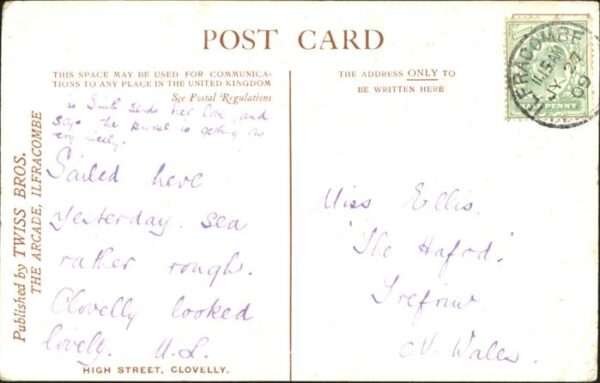 POST CARD
THIS SPACE MAY BE USED FOR COMMUNICA-
TIONS TO ANY PLACE IN THE UNITED KINGDOM
See Postal Regulations
THE ADDRESS ONLY TO
BE WRITTEN HERE
ILFRACOMBE
11.15 AM
09
HALF PENNY
sends her love and
says the parcel is getting on
Sailed here
yesterday. sea
rather rough.
Clovelly looked
lovely. U.L.
Miss Ellis.
"The Hafod."
Trefriw
N. Wales
Published by TWISS BROS.
THE ARCADE, ILFRACOMBE
HIGH STREET, CLOVELLY.